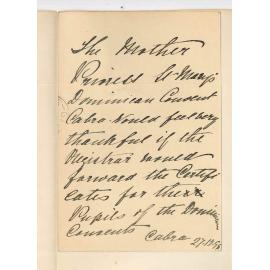 The Mother
Prioress St. Mary's
Dominican Convent
Cabra would feel very
thankful if the
Registrar would
forward the Certifi
cates for the
Pupils of the Dominican
Convents
Cabra